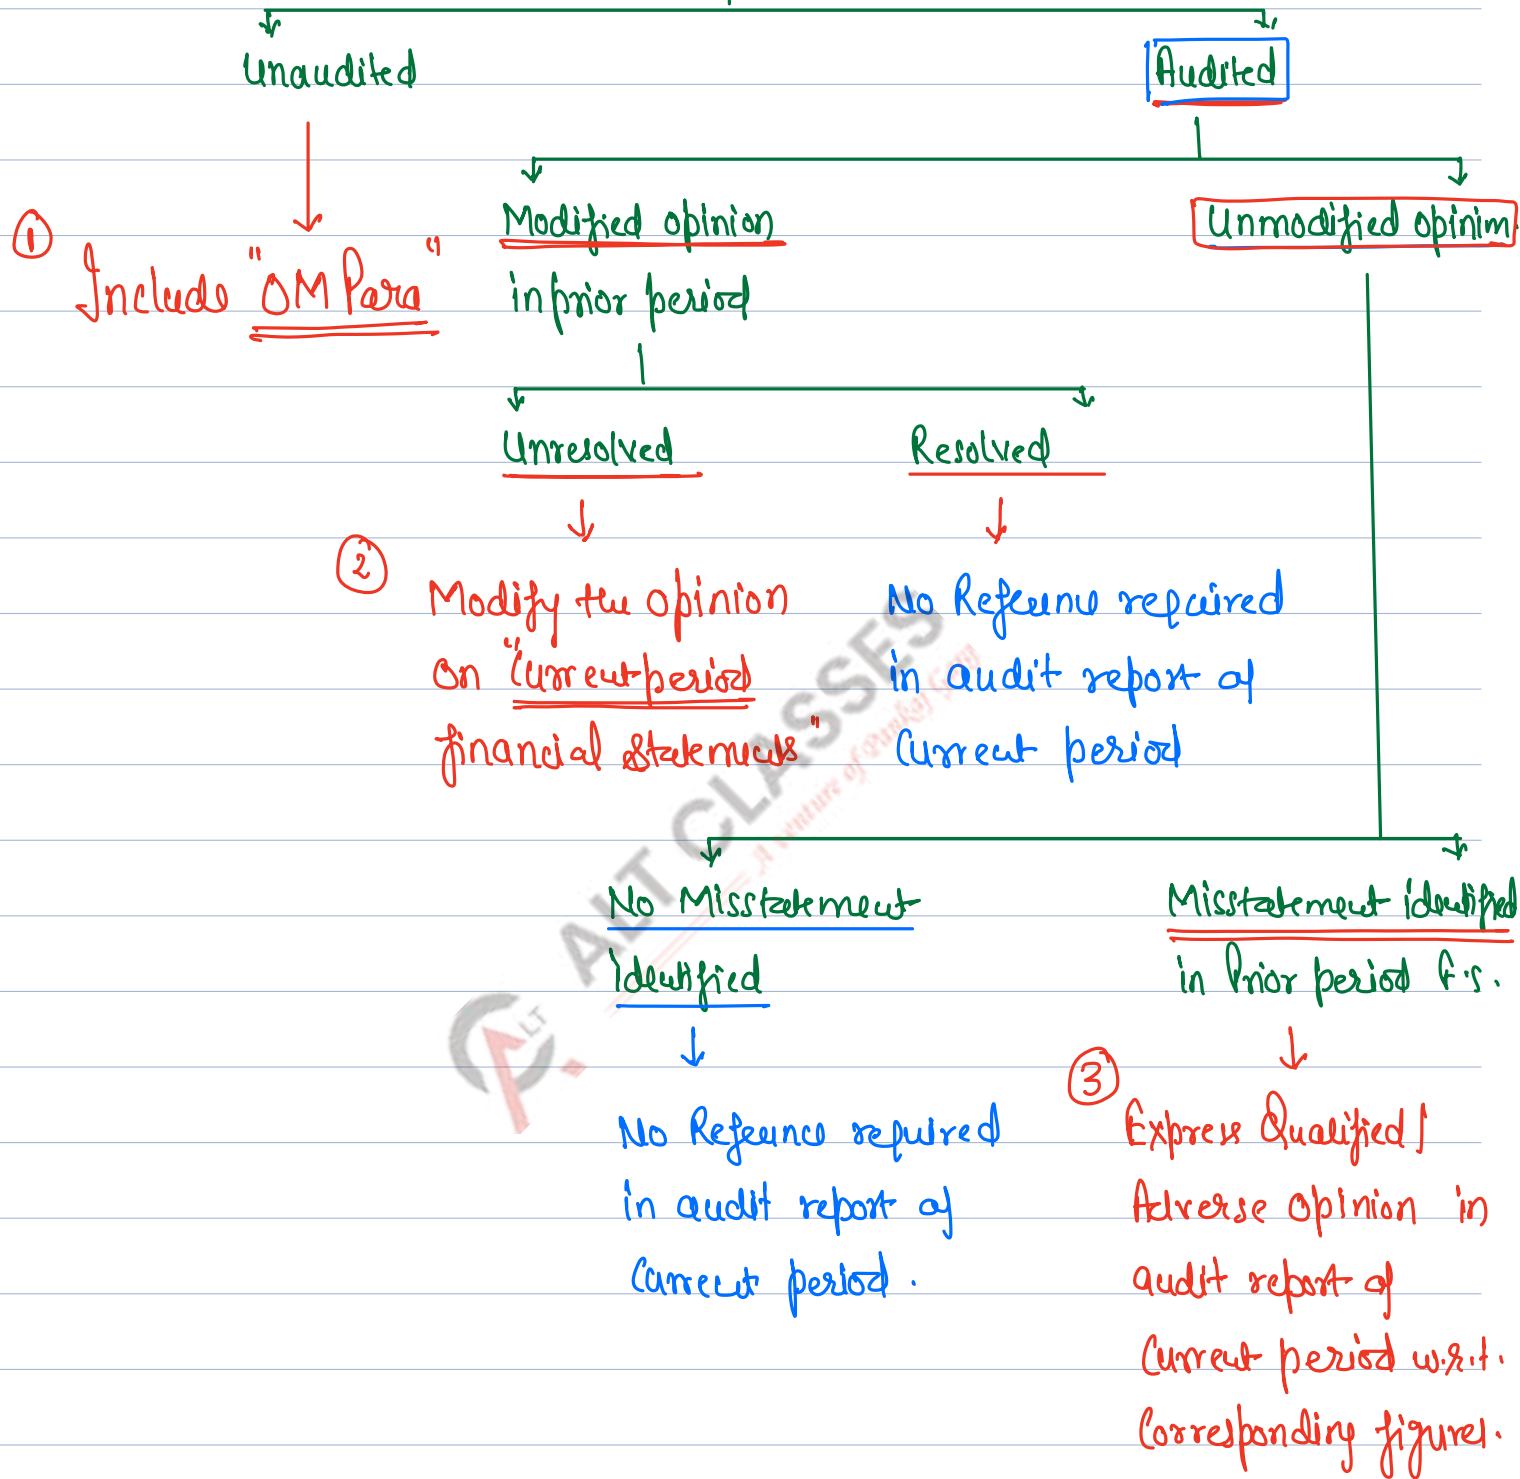 Unaudited
Audited
Modified opinion
in prior period
Unmodified opinion
1
Include "OM Para"
Unresolved
Resolved
2
Modify the opinion
on "Current period
financial statements"
No Reference required
in audit report of
Current period
No Misstatement
Identified
Misstatement identified
in Prior period F.S.
No Reference required
in audit report of
Current period.
3
Express Qualified/
Adverse opinion in
audit report of
Current period w.r.t.
Corresponding figures.
ALT CLASSES
A venture of Pankaj Garg
ALT